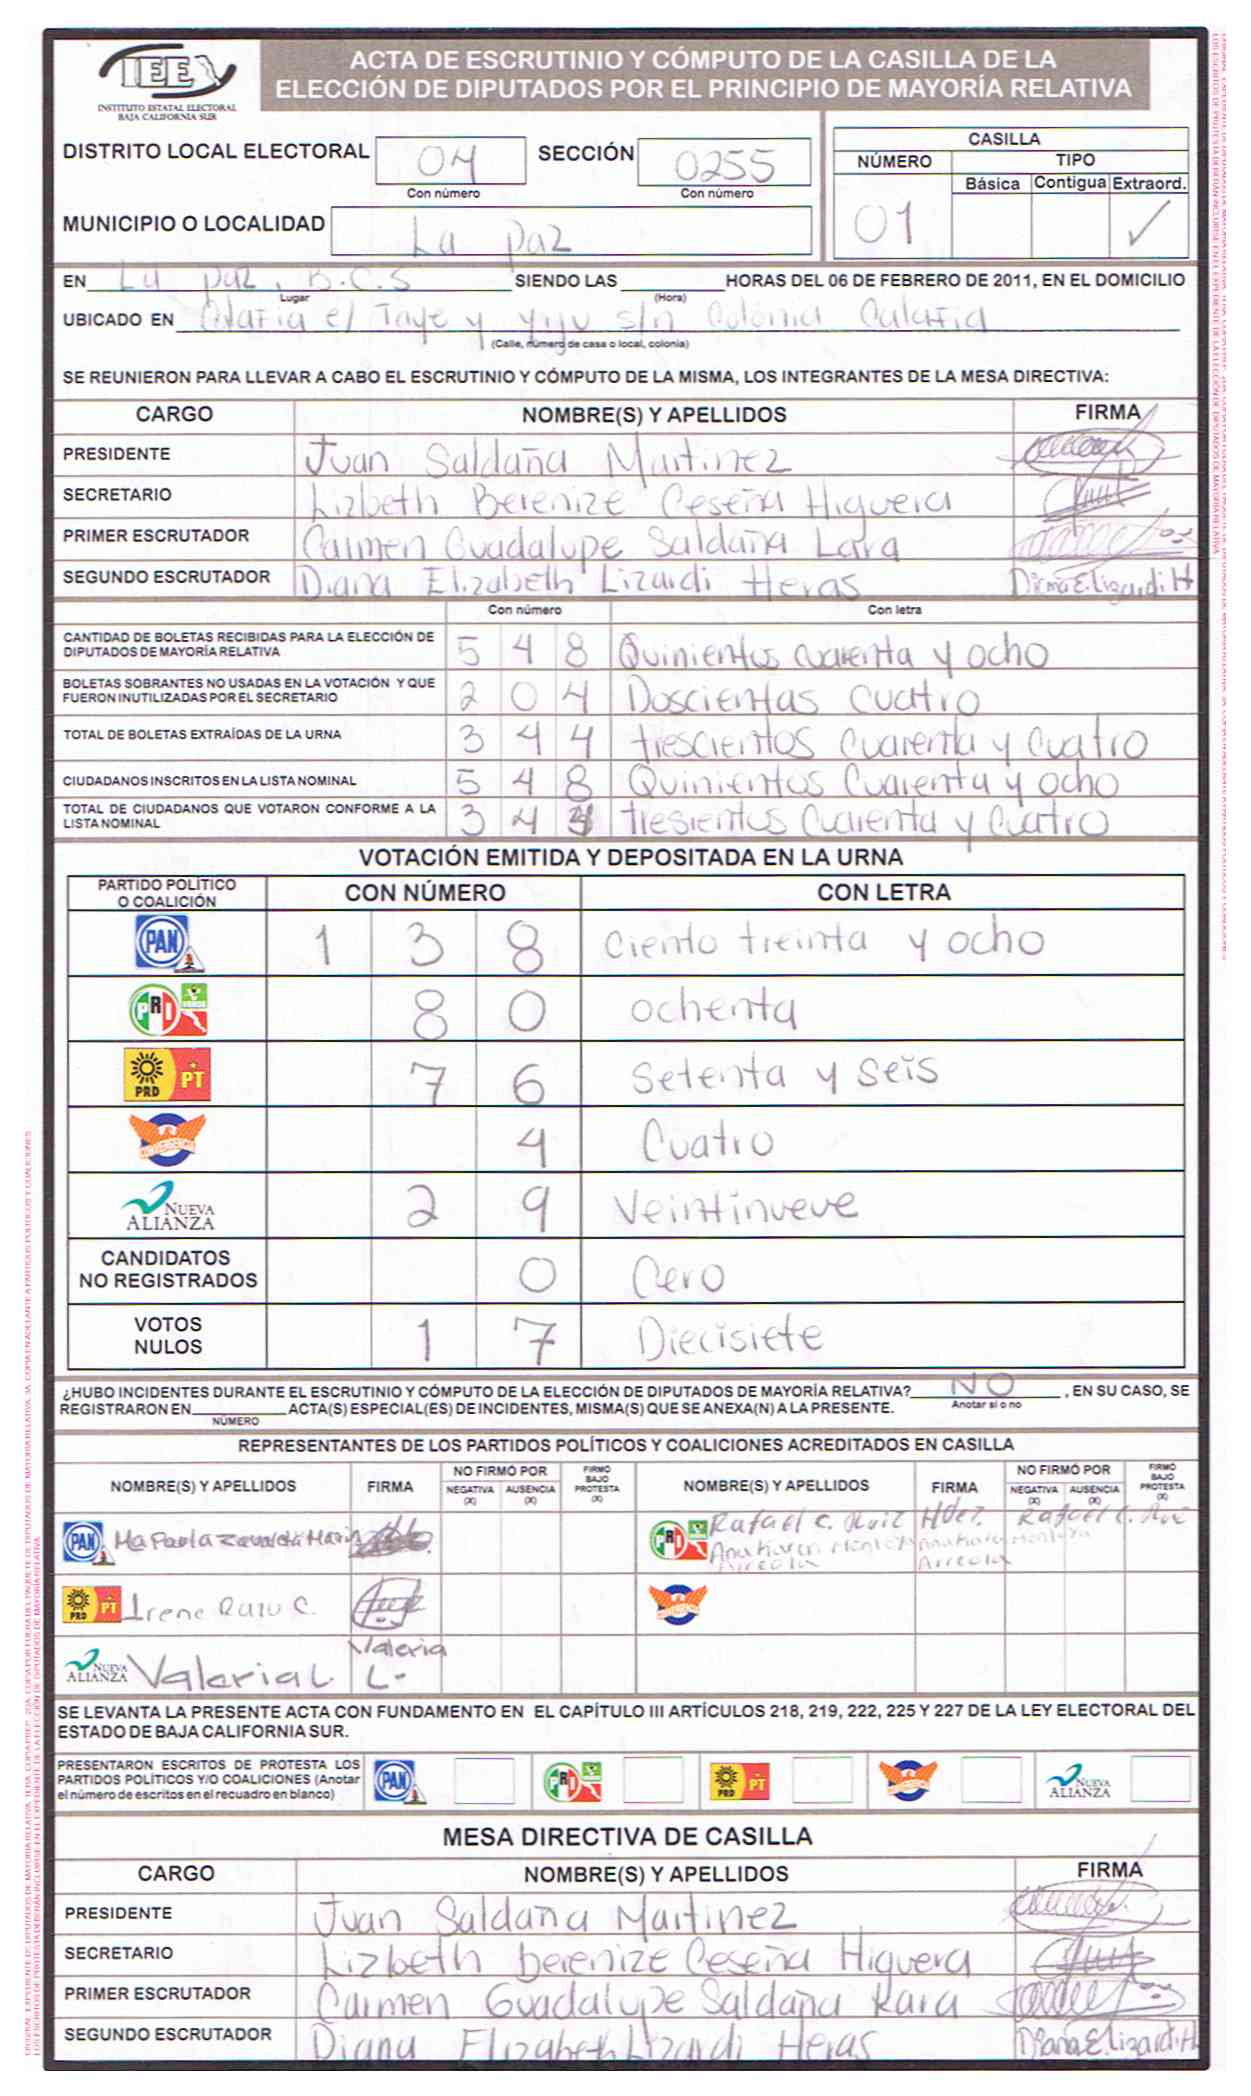 IEE
INSTITUTO ESTATAL ELECTORAL
BAJA CALIFORNIA SUR
ACTA DE ESCRUTINIO Y CÓMPUTO DE LA CASILLA DE LA
ELECCIÓN DE DIPUTADOS POR EL PRINCIPIO DE MAYORÍA RELATIVA
DISTRITO LOCAL ELECTORAL 04 SECCIÓN 0255
Con número Con número
MUNICIPIO O LOCALIDAD La paz
CASILLA
NÚMERO TIPO
Básica Contigua Extraord.
01 ✓
EN La paz, B.C.S SIENDO LAS HORAS DEL 06 DE FEBRERO DE 2011, EN EL DOMICILIO
Lugar (Hora)
UBICADO EN Calafia e/ Taye y yuyu s/n Colonia Calafia
(Calle, número de casa o local, colonia)
SE REUNIERON PARA LLEVAR A CABO EL ESCRUTINIO Y CÓMPUTO DE LA MISMA, LOS INTEGRANTES DE LA MESA DIRECTIVA:
CARGO NOMBRE(S) Y APELLIDOS FIRMA
PRESIDENTE Juan Saldaña Martinez
SECRETARIO Lizbeth Berenize Ceseña Higuera
PRIMER ESCRUTADOR Carmen Guadalupe Saldaña Lara
SEGUNDO ESCRUTADOR Diana Elizabeth Lizardi Heras Diana E. Lizardi H
Con número Con letra
CANTIDAD DE BOLETAS RECIBIDAS PARA LA ELECCIÓN DE
DIPUTADOS DE MAYORÍA RELATIVA 5 4 8 Quinientos cuarenta y ocho
BOLETAS SOBRANTES NO USADAS EN LA VOTACIÓN Y QUE
FUERON INUTILIZADAS POR EL SECRETARIO 2 0 4 Doscientas cuatro
TOTAL DE BOLETAS EXTRAÍDAS DE LA URNA 3 4 4 trescientos Cuarenta y Cuatro
CIUDADANOS INSCRITOS EN LA LISTA NOMINAL 5 4 8 Quinientos Cuarenta y ocho
TOTAL DE CIUDADANOS QUE VOTARON CONFORME A LA
LISTA NOMINAL 3 4 4 tresientos Cuarenta y Cuatro
VOTACIÓN EMITIDA Y DEPOSITADA EN LA URNA
PARTIDO POLÍTICO
O COALICIÓN CON NÚMERO CON LETRA
PAN 1 3 8 Ciento treinta y ocho
PRI VERDE 8 0 ochenta
PRD PT 7 6 Setenta y seis
CONVERGENCIA 4 Cuatro
NUEVA
ALIANZA 2 9 Veintinueve
CANDIDATOS
NO REGISTRADOS 0 Cero
VOTOS
NULOS 1 7 Diecisiete
¿HUBO INCIDENTES DURANTE EL ESCRUTINIO Y CÓMPUTO DE LA ELECCIÓN DE DIPUTADOS DE MAYORÍA RELATIVA? NO , EN SU CASO, SE
Anotar si o no
REGISTRARON EN ACTA(S) ESPECIAL(ES) DE INCIDENTES, MISMA(S) QUE SE ANEXA(N) A LA PRESENTE.
NÚMERO
REPRESENTANTES DE LOS PARTIDOS POLÍTICOS Y COALICIONES ACREDITADOS EN CASILLA
NOMBRE(S) Y APELLIDOS FIRMA NO FIRMÓ POR NEGATIVA (X) AUSENCIA (X) FIRMÓ BAJO PROTESTA (X) NOMBRE(S) Y APELLIDOS FIRMA NO FIRMÓ POR NEGATIVA (X) AUSENCIA (X) FIRMÓ BAJO PROTESTA (X)
PAN Ma Paola Marin PRI Rafael C. Ruiz Hdez. Rafael C. Ruiz
Ana Karen Montoya Ana Karen Montoya
Arreola Arreola
PRD PT Irene C. CONVERGENCIA
NUEVA
ALIANZA Valeria L. Valeria
L.
SE LEVANTA LA PRESENTE ACTA CON FUNDAMENTO EN EL CAPÍTULO III ARTÍCULOS 218, 219, 222, 225 Y 227 DE LA LEY ELECTORAL DEL
ESTADO DE BAJA CALIFORNIA SUR.
PRESENTARON ESCRITOS DE PROTESTA LOS
PARTIDOS POLÍTICOS Y/O COALICIONES (Anotar
el número de escritos en el recuadro en blanco)
PAN PRI PRD PT CONVERGENCIA NUEVA ALIANZA
MESA DIRECTIVA DE CASILLA
CARGO NOMBRE(S) Y APELLIDOS FIRMA
PRESIDENTE Juan Saldaña Martinez
SECRETARIO Lizbeth Berenize Ceseña Higuera
PRIMER ESCRUTADOR Carmen Guadalupe Saldaña Rara
SEGUNDO ESCRUTADOR Diana Elizabeth Lizardi Heras Diana E. Lizardi H